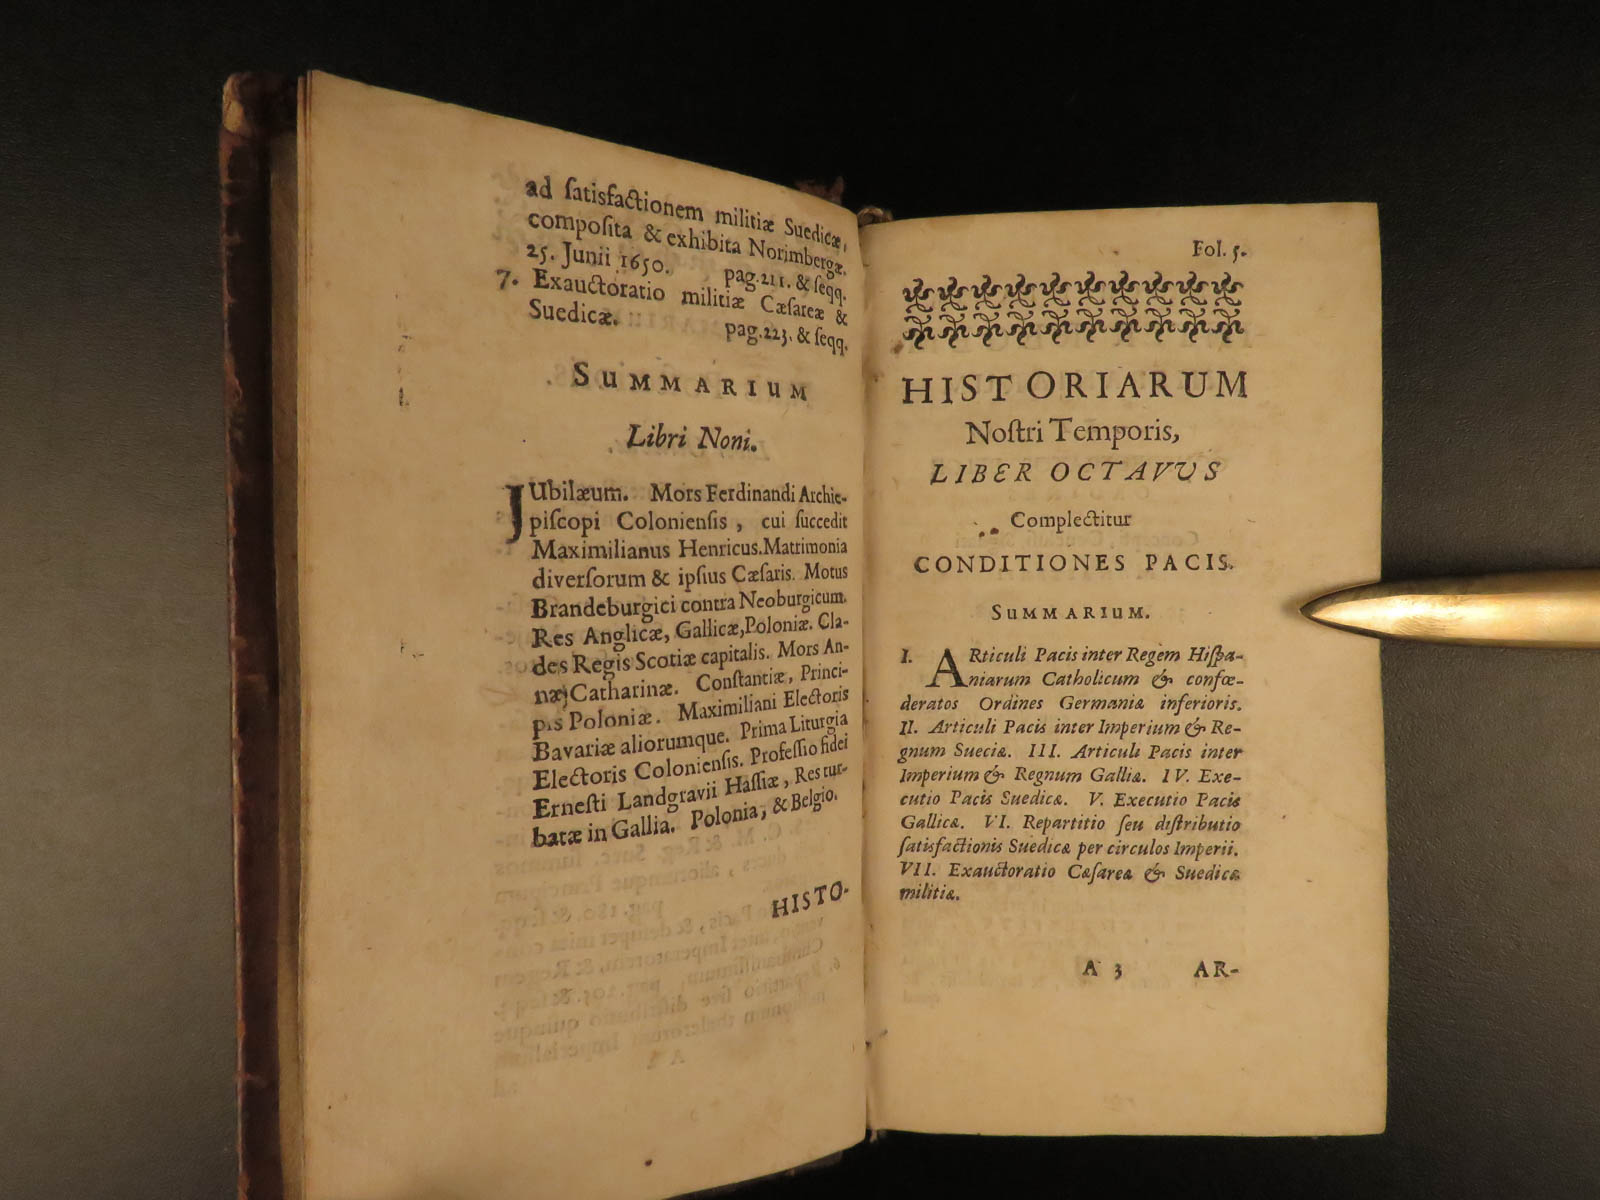 ad ſatisfactionem militiæ Suedicæ,
compoſita & exhibita Norimbergæ.
25. Junii 1650. pag. 211. & ſeqq.
7. Exauctoratio militiæ Cæſareæ &
Suedicæ. pag. 223. & ſeqq.
SUMMARIUM
Libri Noni.
JUbilæum. Mors Ferdinandi Archie-
piſcopi Colonienſis, cui ſuccedit
Maximilianus Henricus. Matrimonia
diverſorum & ipſius Cæſaris. Motus
Brandeburgici contra Neoburgicum.
Res Anglicæ, Gallicæ, Poloniæ. Cla-
des Regis Scotiæ capitalis. Mors An-
næ Catharinæ. Conſtantiæ, Princi-
pis Poloniæ. Maximiliani Electoris
Bavariæ aliorumque. Prima Liturgia
Electoris Colonienſis. Profeſſio fidei
Erneſti Landgravii Haſſiæ, Res tur-
batæ in Gallia. Polonia, & Belgio.
HISTO-
Fol. 5.
HISTORIARUM
Noſtri Temporis,
LIBER OCTAVUS
Complectitur
CONDITIONES PACIS.
SUMMARIUM.
I. ARticuli Pacis inter Regem Hiſpa-
niarum Catholicum & confœ-
deratos Ordines Germaniæ inferioris.
II. Articuli Pacis inter Imperium & Re-
gnum Sueciæ. III. Articuli Pacis inter
Imperium & Regnum Galliæ. IV. Exe-
cutio Pacis Suedicæ. V. Executio Pacis
Gallicæ. VI. Repartitio ſeu diſtributio
ſatisfactionis Suedicæ per circulos Imperii.
VII. Exauctoratio Cæſareæ & Suedicæ
militiæ.
A 3 AR-